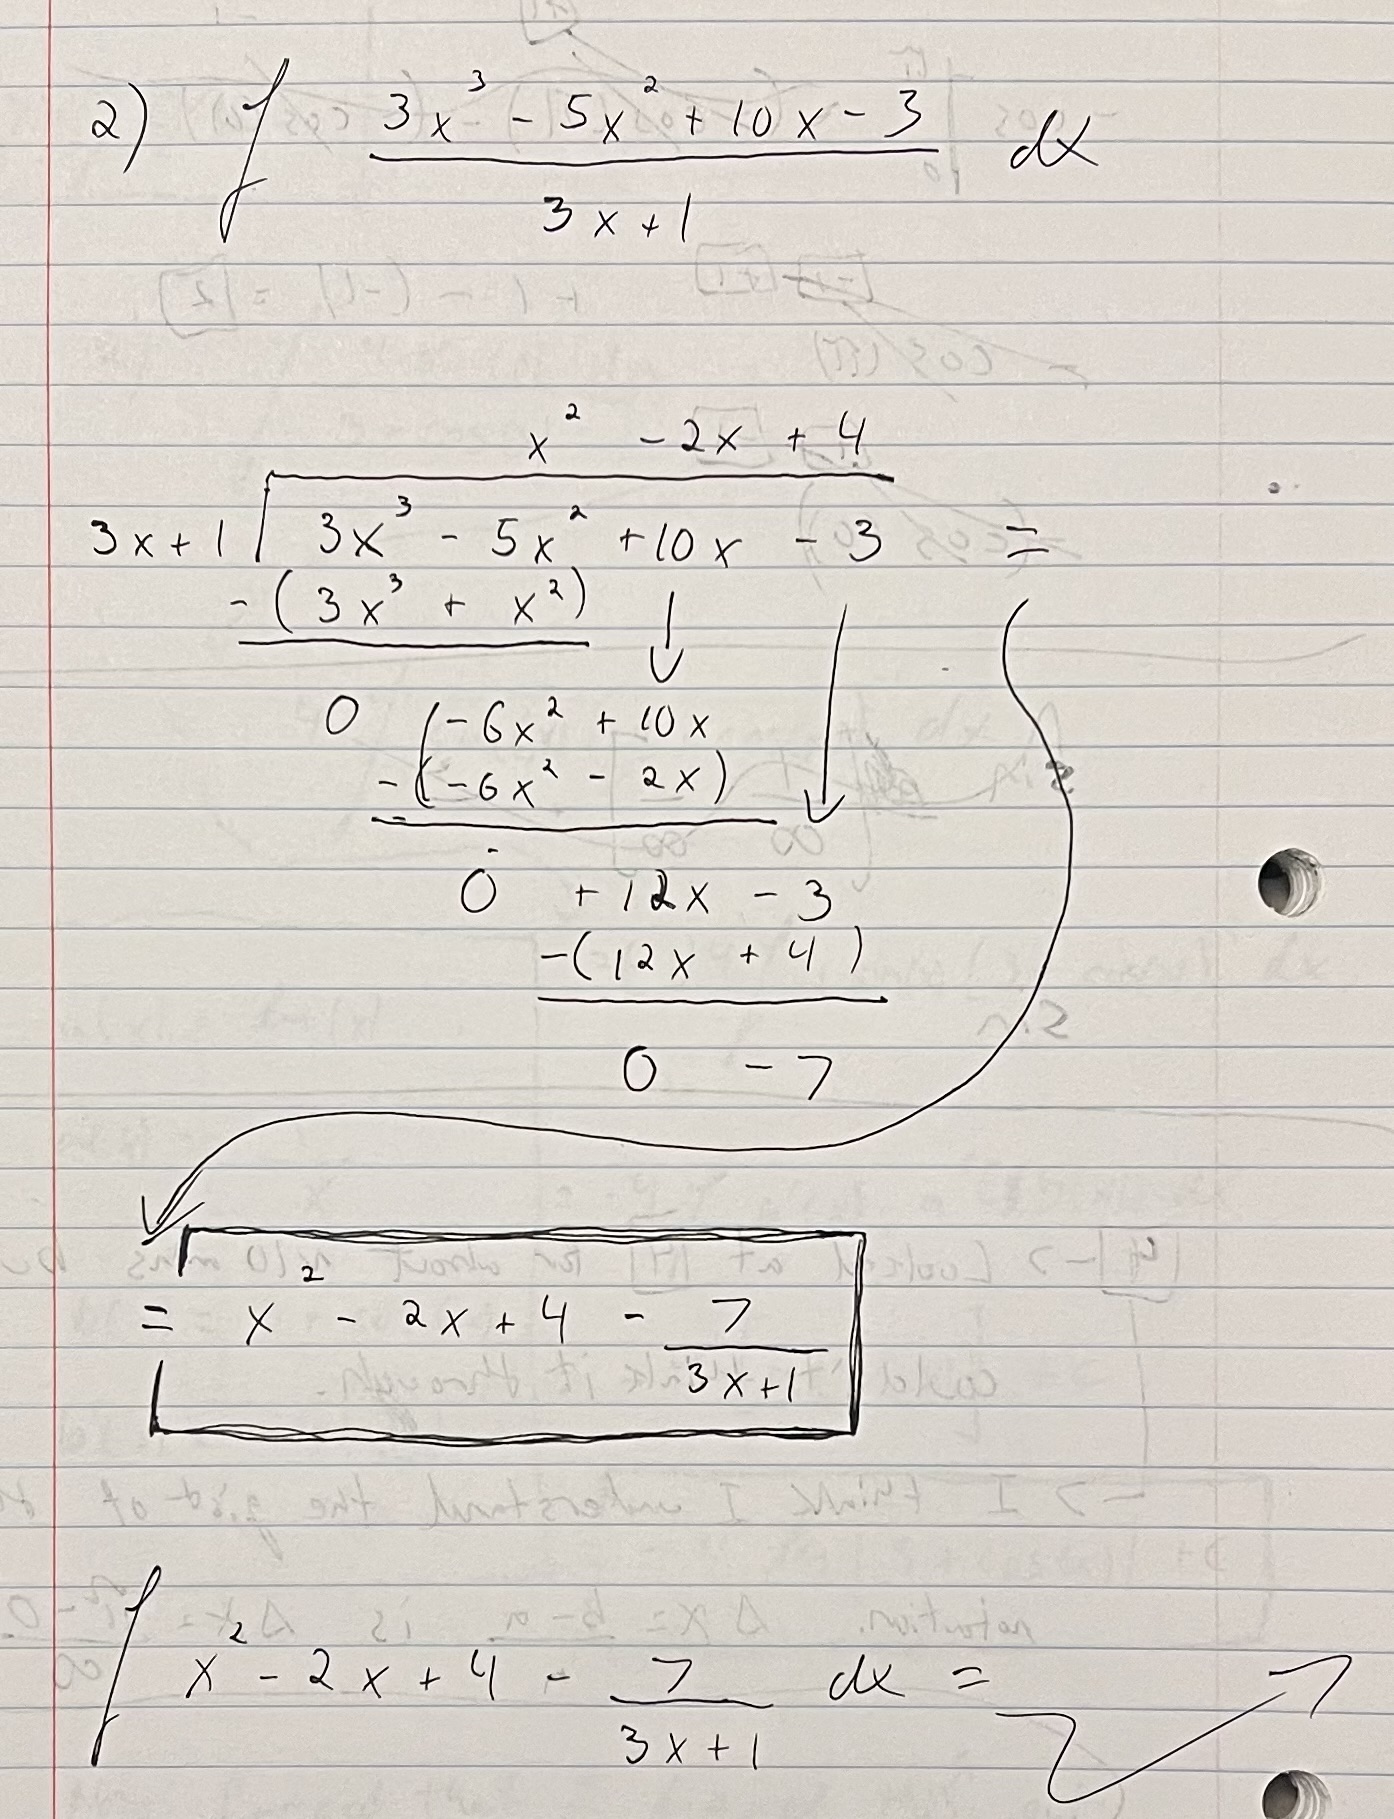 2) ∫ (3x³ - 5x² + 10x - 3)/(3x + 1) dx
x² - 2x + 4
3x + 1 | 3x³ - 5x² + 10x - 3 =
-(3x³ + x²)
0 (-6x² + 10x
-(-6x² - 2x)
0 + 12x - 3
-(12x + 4)
0 - 7
= x² - 2x + 4 - 7/(3x + 1)
∫ x² - 2x + 4 - 7/(3x + 1) dx =